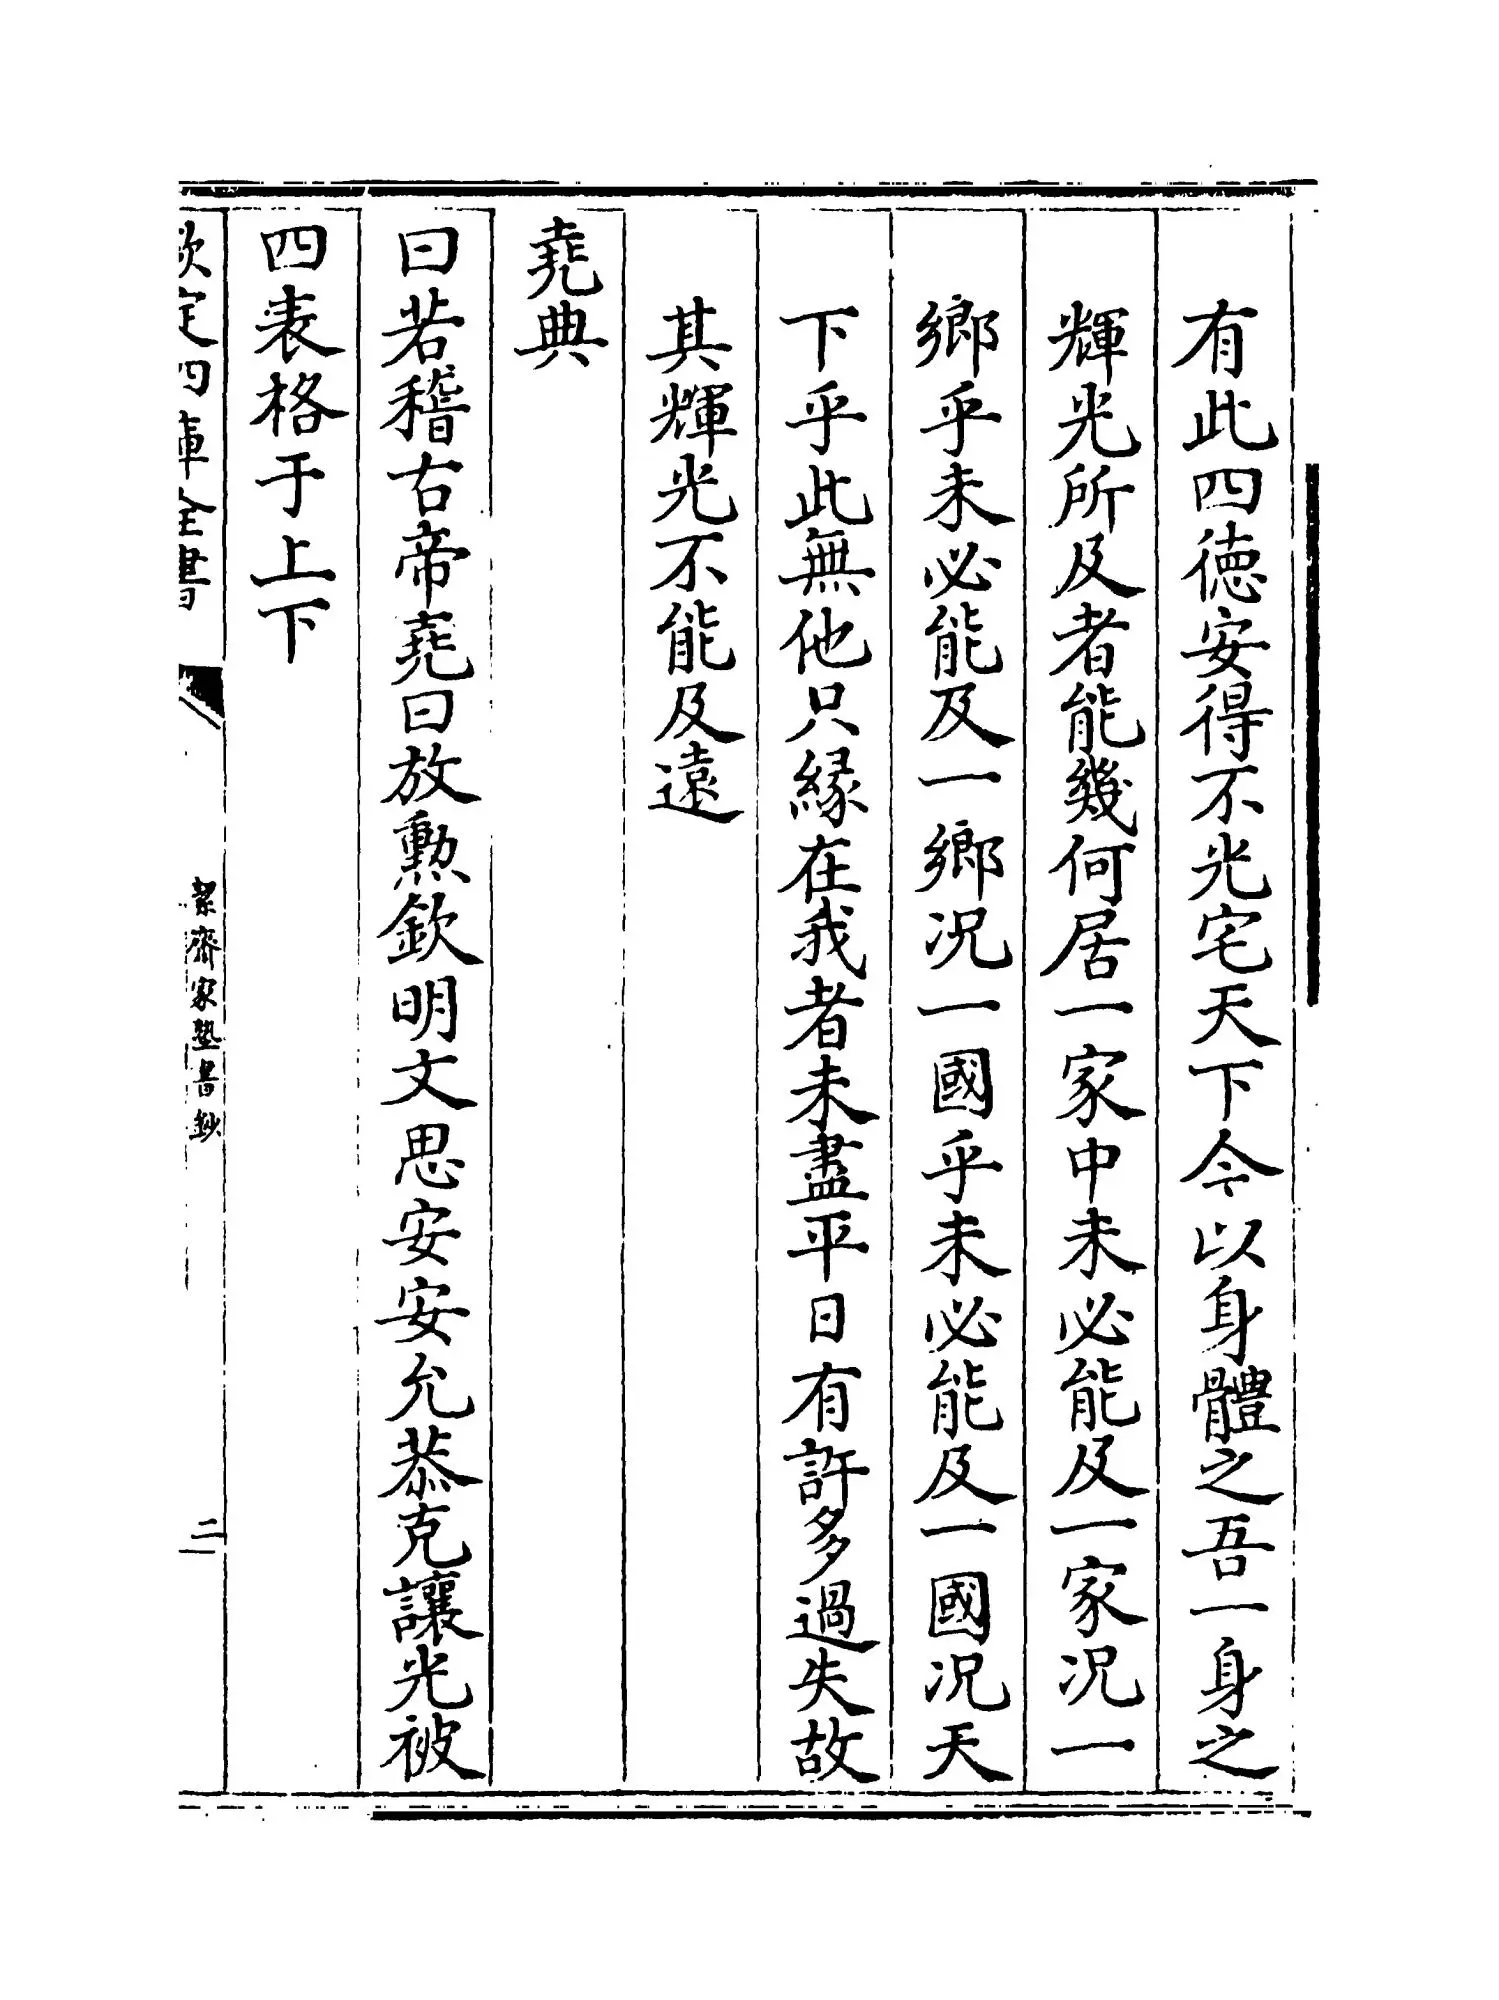 有此四徳安得不光宅天下今以身體之吾一身之
輝光所及者能幾何居一家中未必能及一家况一
鄉乎未必能及一鄉况一國乎未必能及一國况天
下乎此無他只縁在我者未盡平日有許多過失故
其輝光不能及遠
堯典
曰若稽古帝堯曰放勲欽明文思安安允恭克讓光被
四表格于上下
欽定四庫全書
絜齋家塾書鈔
二